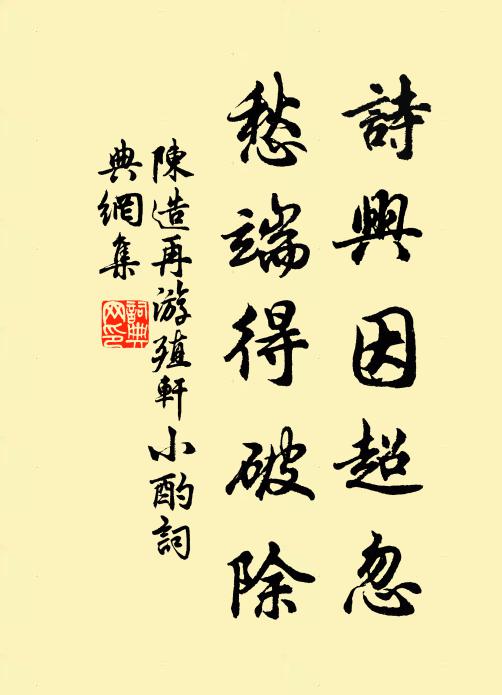 詩興因超忽
愁端得破除
陳造再游殖軒小酌詞
典網集
詞典網印